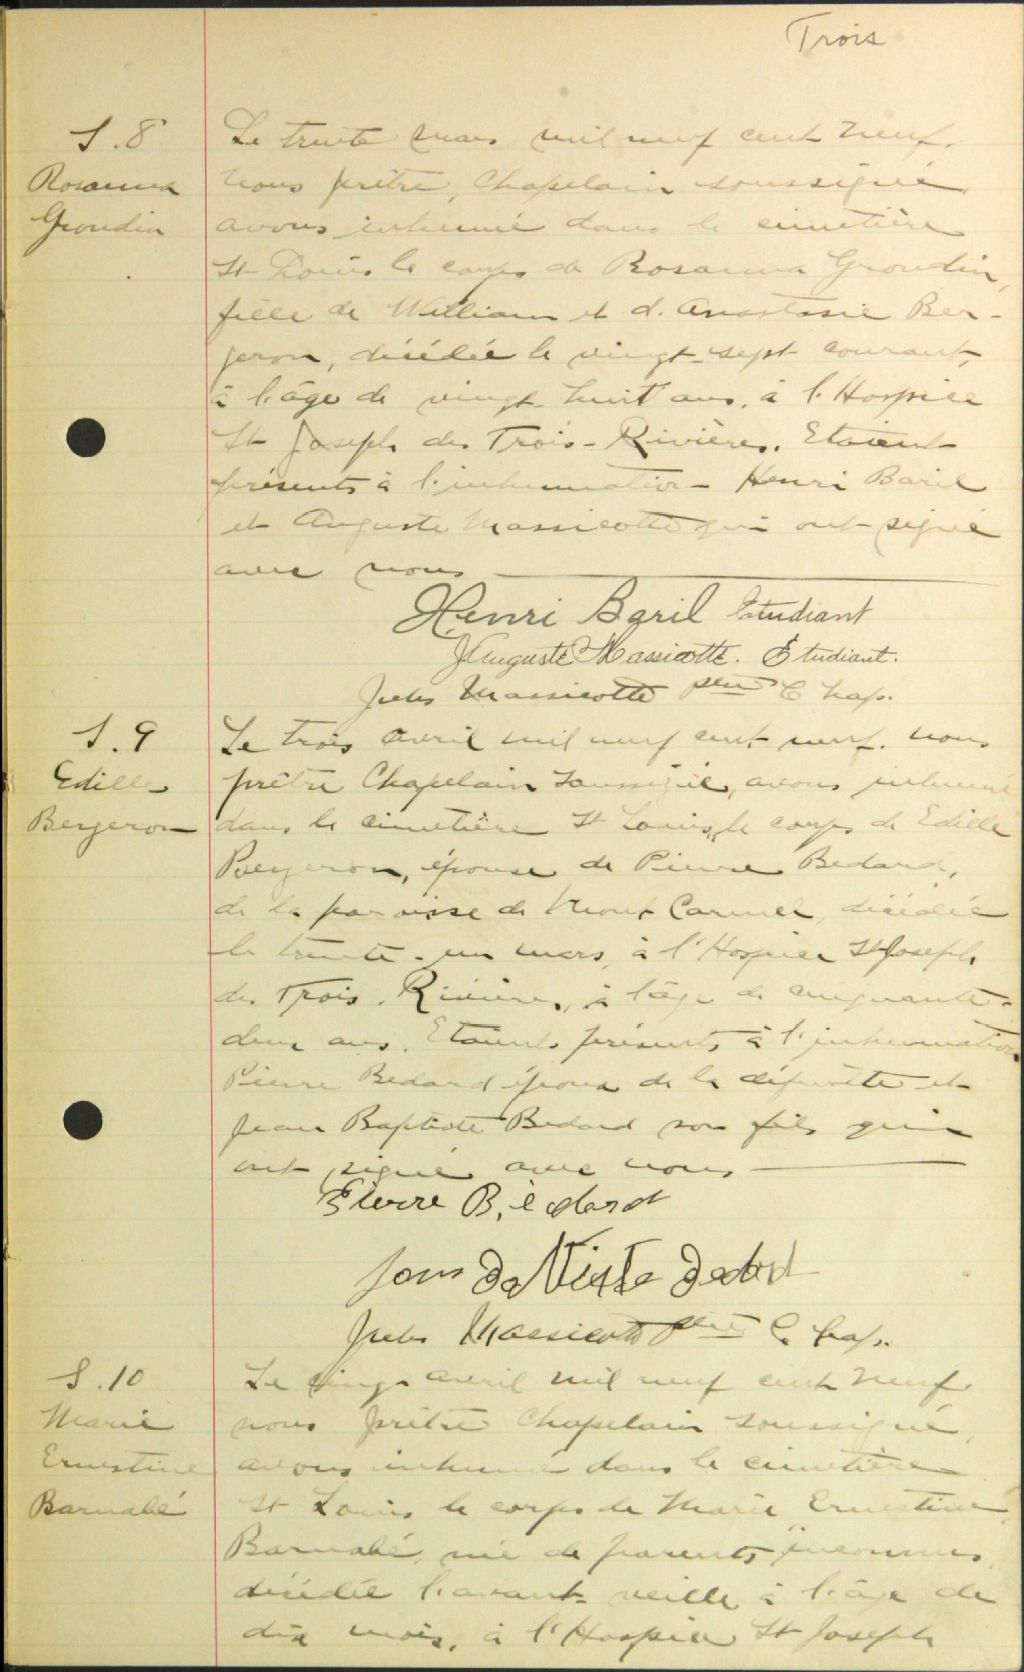 Trois
S. 8
Rosanna
Grondin
Le trente mars mil neuf cent neuf,
nous prêtre, Chapelain soussigné
avons inhumé dans le cimetière
St Louis le corps de Rosanna Grondin,
fille de William et d. Anastasie Ber-
geron, décédée le vingt-sept courant,
à l'âge de vingt-huit ans, à l'Hospice
St Joseph des Trois-Rivières. Etaient
présents à l'inhumation Henri Baril
et Auguste Massicotte qui ont signé
avec nous
Henri Baril Etudiant
J Auguste Massicotte. Etudiant.
Jules Massicotte ptre Chap.
S. 9
Edille
Bergeron
Le trois avril mil neuf cent neuf. nous
prêtre Chapelain soussigné, avons inhumé
dans le cimetière St Louis, le corps de Edille
Bergeron, épouse de Pierre Bedard,
de la paroisse de Mont Carmel, décédée
le trente-un mars, à l'Hospice St Joseph
des Trois-Rivières, à l'âge de cinquante-
deux ans. Etaient présents à l'inhumation
Pierre Bedard époux de la défunte et
Jean Baptiste Bedard son fils qui
ont signé avec nous
Pierre Bédard
Jules Massicotte ptre Chap.
S. 10
Marie
Ernestine
Barnabé
Le cinq avril mil neuf cent neuf
nous prêtre Chapelain soussigné,
avons inhumé dans le cimetière
St Louis le corps de Marie Ernestine
Barnabé, née de parents inconnus,
décédée l'avant-veille à l'âge de
dix mois, à l'Hospice St Joseph